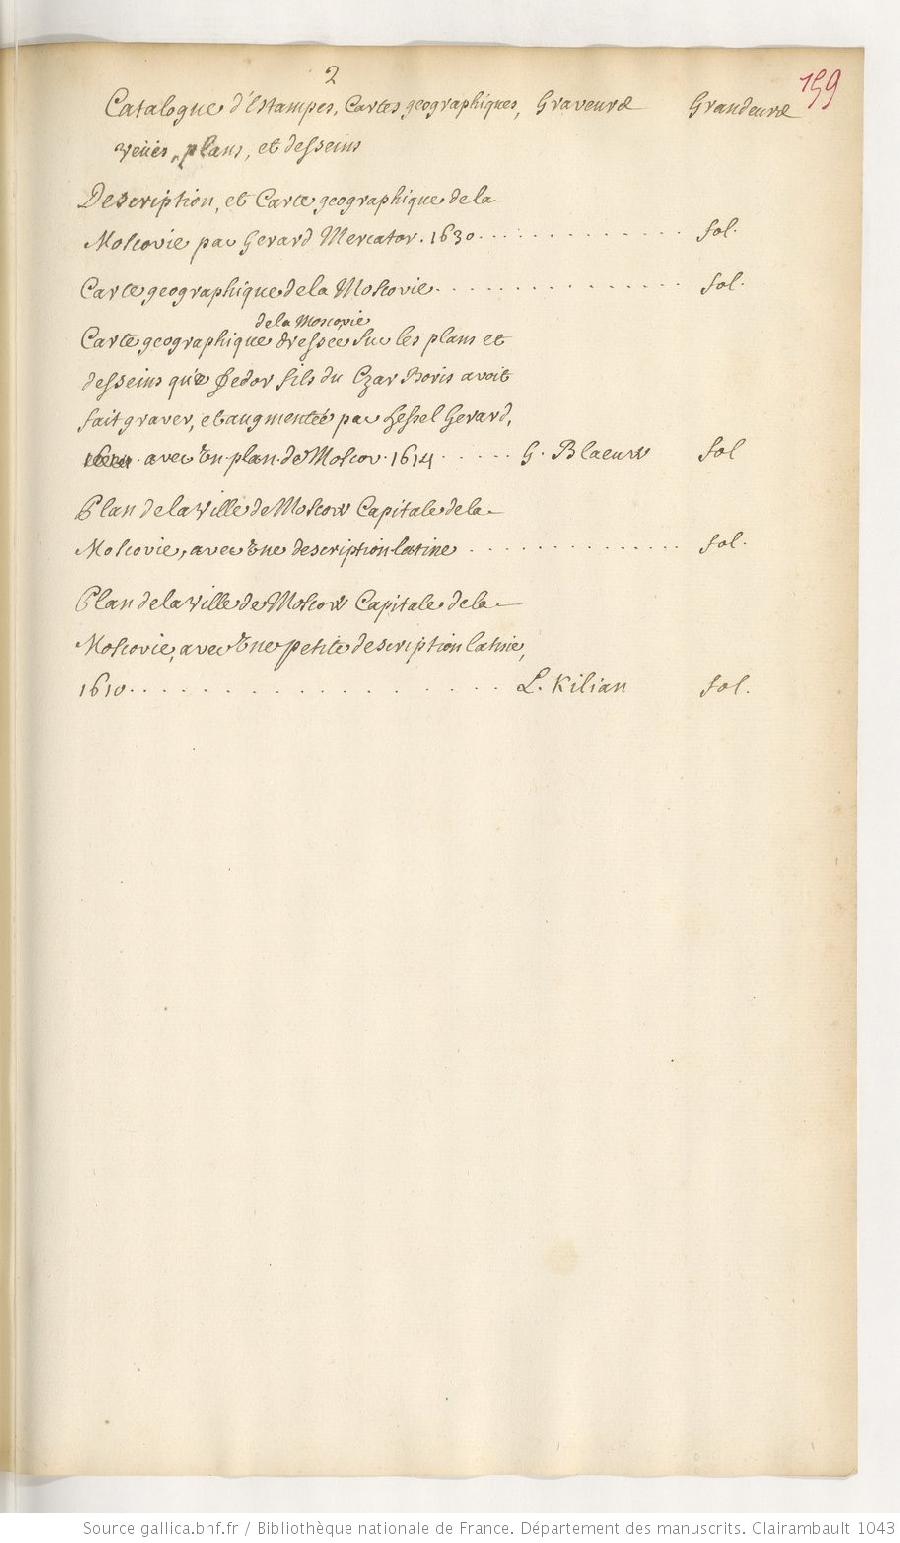 2
159
Catalogue d'Estampes, Cartes geographiques, Graveurs Grandeurs
Veües, plans, et desseins
Description, et Carte geographique de la
Moscovie par Gerard Mercator. 1630. . . . . . . . . . . . . fol.
Carte geographique de la Moscovie. . . . . . . . . . . . . . . fol.
de la Moscovie
Carte geographique dressée sur les plans et
desseins que Fedor fils du Czar Boris avoit
fait graver, et augmentée par Hessel Gerard,
avec un plan de Moscov. 1614 . . . . . G. Blaeuw fol
Plan de la Ville de Moscow Capitale de la
Moscovie, avec une description latine . . . . . . . . . . . . . fol.
Plan de la Ville de Moscow Capitale de la
Moscovie, avec une petite description latine,
1610. . . . . . . . . . . . . . . . . . L. Kilian fol.
Source gallica.bnf.fr / Bibliothèque nationale de France. Département des manuscrits. Clairambault 1043